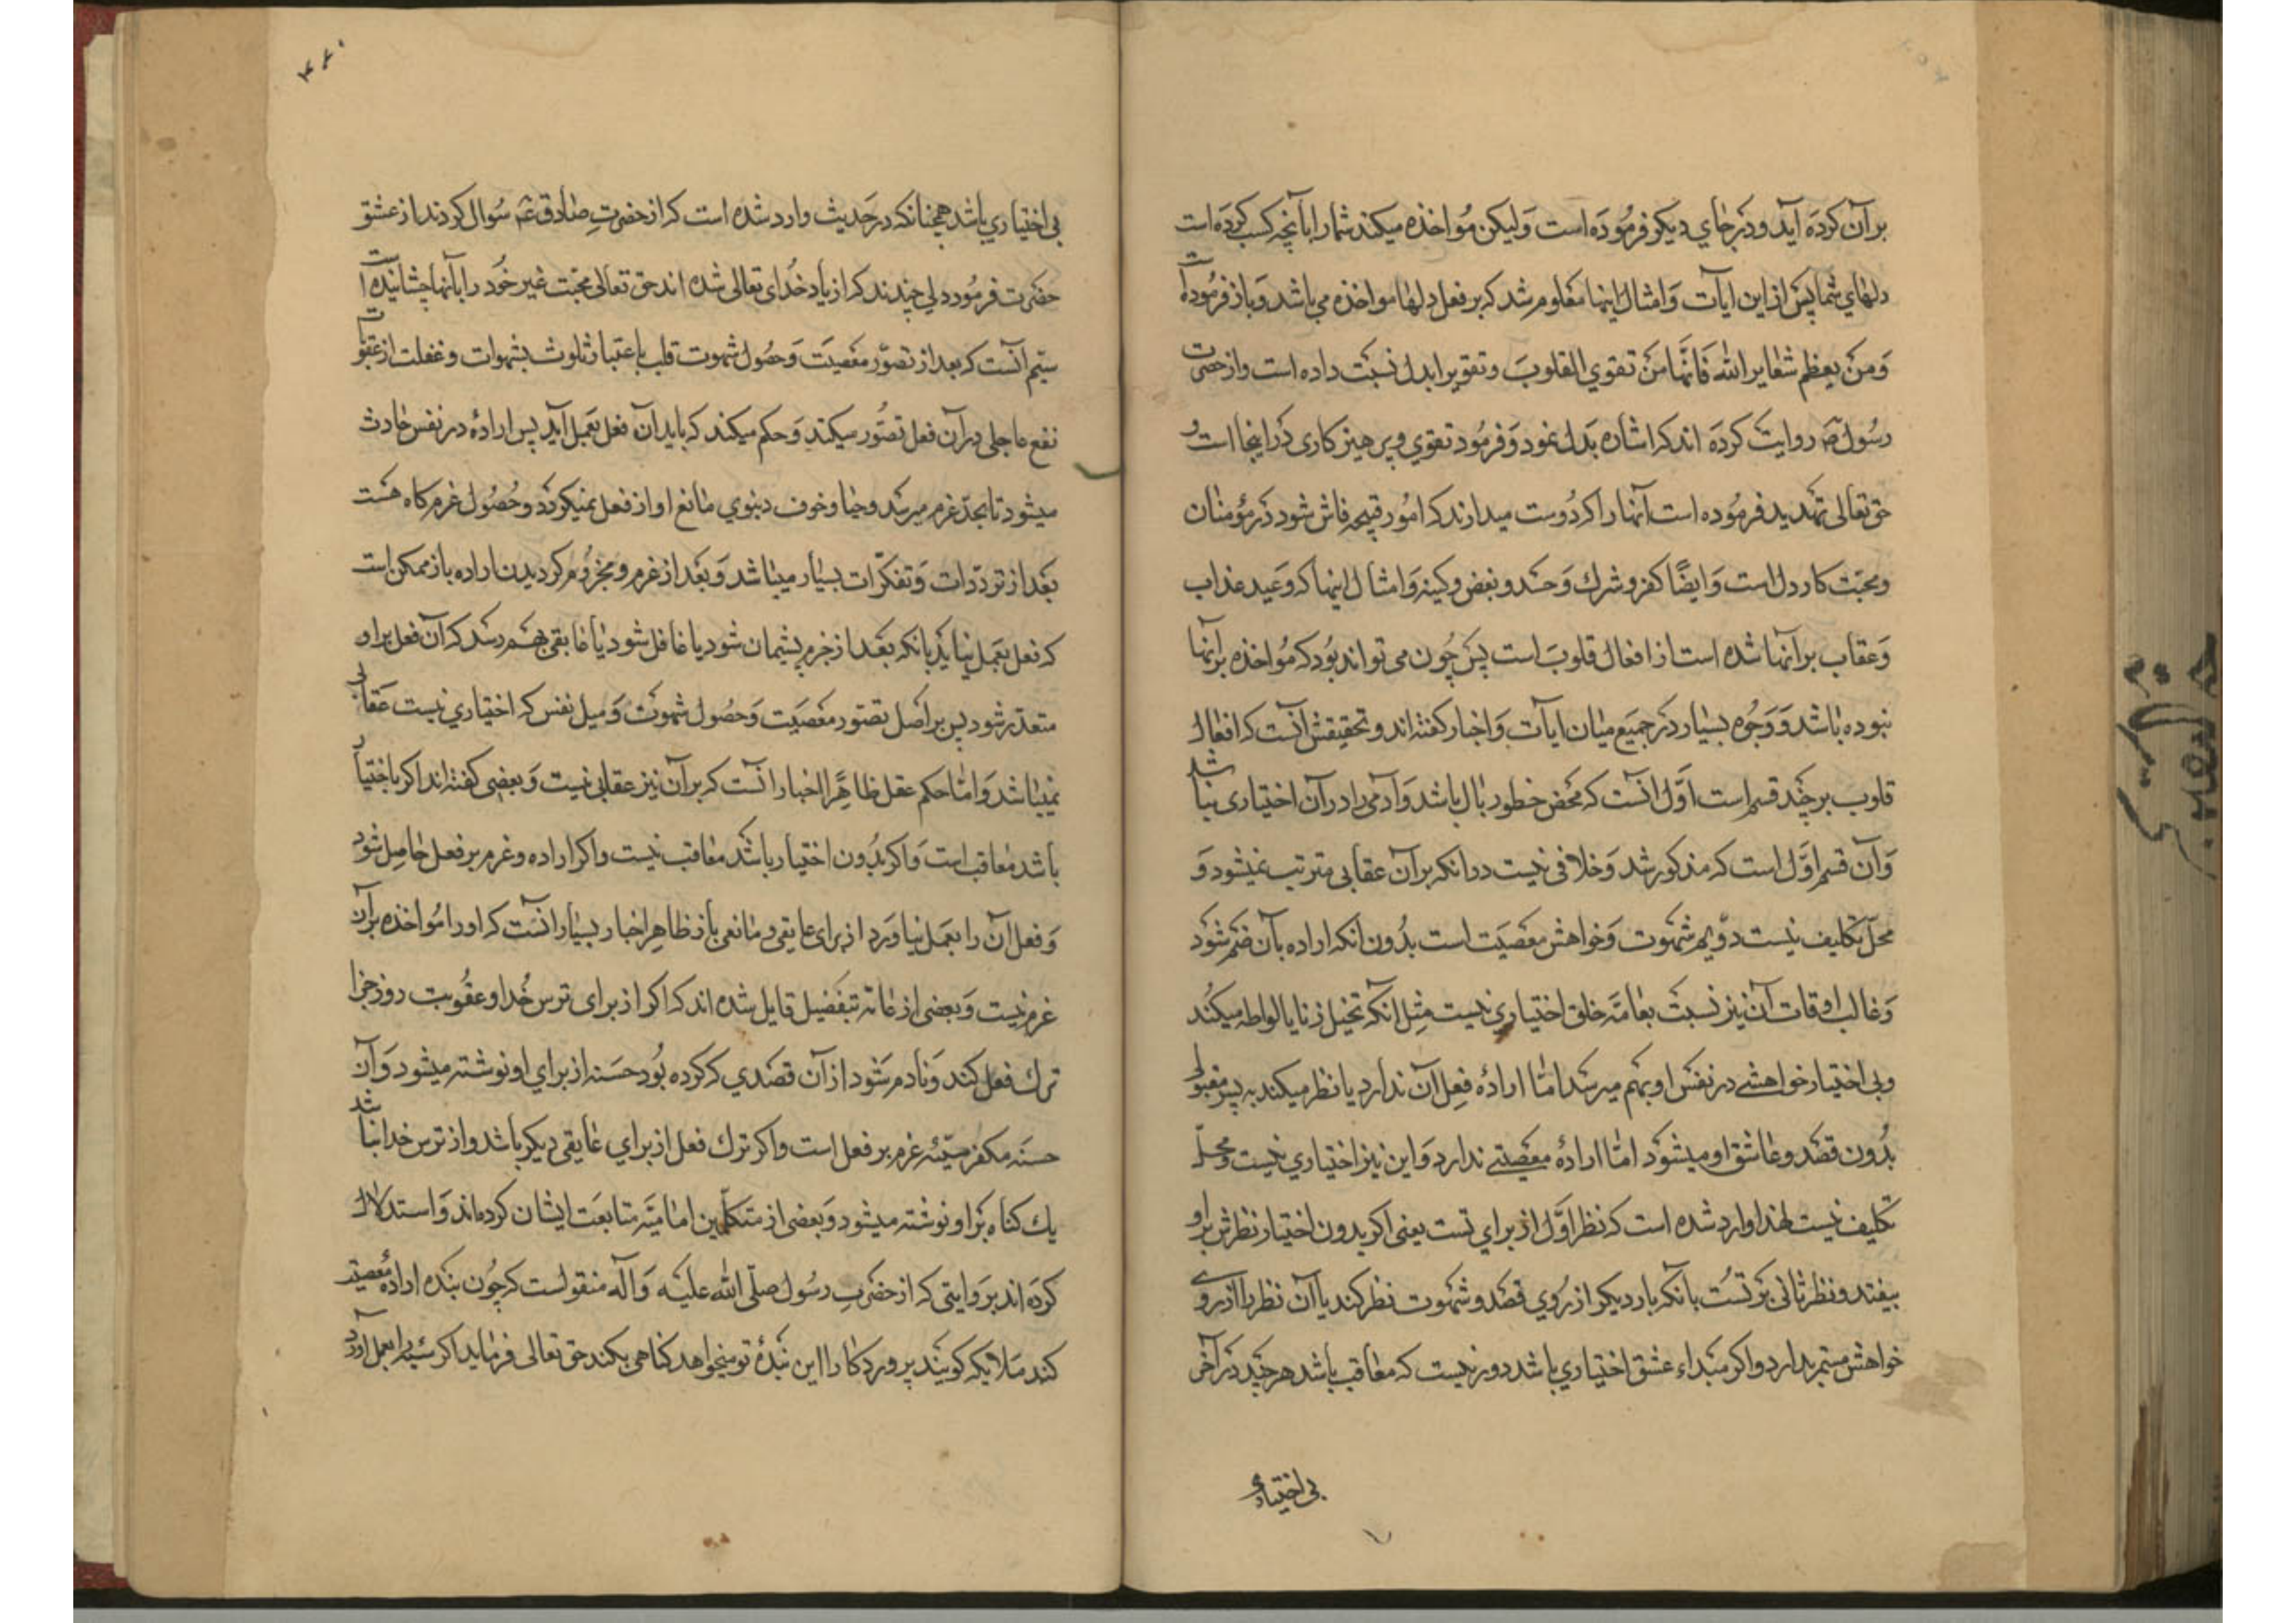 بر آن کرده آید و در جای دیکر فرموده است ولیکن مؤاخذه میکند شما را بآنچه کسب کرده است
دلهای شما پس از این ایات و امثال اینها معلوم شد که بر فعل دلها مواخذه می باشد و باز فرموده است
وَمَن یعظم شعایر الله فَانّها من تقوی القلوب و تقوی را بدل نسبت داده است و از حضرت
رسول ص روایت کرده اند که اشاره بدل نمود و فرمود تقوی و پرهیزکاری در اینجا است و
حق تعالی تهدید فرموده است آنها را که دوست میدارند که امور قبیحه فاش شود در مؤمنان
و محبت کار دل است و ایضًا کفر و شرك و حسد و بغض و کینه و امثال اینها که وعید عذاب
و عقاب بر آنها شده است از افعال قلوب است پس چون می تواند بود که مؤاخذه بر آنها
نبوده باشد و وجوه بسیار در جمیع میان ایات و اخبار کفته اند و تحقیقش آنست که افعال
قلوب بر چند قسم است اوّل آنست که محض خطور بال باشد و آدمی را در آن اختیاری نباشد
و آن قسم اوّل است که مذکور شد و خلافی نیست دوانکه بر آن عقابی مترتب نمیشود و
محلّ تکلیف نیست دوّیم شهوت و خواهش معصیت است بدون انکه اراده بآن ضم شود
و غالب اوقات آن نیز نسبت بعامّه خلق اختیاری نیست مثل انکه تخیل زنا یا لواطه میکند
و بی اختیار خواهشی در نفس او بهم میرسد امّا ارادهٔ فعل آن ندارد یا نظر میکند به پسر مقبولی
بدون قصد و عاشق او میشود امّا ارادهٔ معصیتی ندارد و این نیز اختیاری نیست و محلّ
تکلیف نیست لهذا وارد شده است که نظر اوّل از برای تست یعنی اکر بدون اختیار نظرش بر او
بیفتد و نظر ثانی بر تست بانکه بار دیکر از روی قصد و شهوت نظر کند یا آن نظر را از روی
خواهش مستمر بدارد و اکر مبداء عشق اختیاری باشد دور نیست که معاقب باشد هر چند در آخر
بی اختیاری
۴۶۰
بی اختیاری باشد همچنانکه در حدیث وارد شده است که از حضرت صادق عم سؤال کردند از عشق
حضرت فرمود دلی چندند که از یاد خدای تعالی شده اند حق تعالی محبّت غیر خود را بآنها چشانیده است
سیّم آنست که بعد از تصوّر معصیت و حصول شهوت قلب باعتبار تلوث بشهوات و غفلت از عقوبت
نفع عاجلی در آن فعل تصوّر میکند و حکم میکند که باید آن فعل بعمل آید پس ارادهٔ در نفس حادث
میشود تا بحدّ عزم میرسد و حیا و خوف دینوی مانع او از فعل نمیکردد و حصول عزم کاه هست
بعد از تردّدات و تفکّرات بسیار میباشد و بعد از عزم و مجزوم کردیدن اراده باز ممکن است
که فعل بعمل نیاید بانکه بعد از جزم پشیمان شود یا غافل شود یا عایقی بهم رسد که آن فعل بر او
متعذر شود پس بر اصل تصوّر معصیت و حصول شهوت و میل نفس که اختیاری نیست عقابی
نمیباشد و امّا حکم عقل ظاهرًا اخبار آنست که بر آن نیز عقابی نیست و بعضی کفته اند اکر باختیار
باشد معاقب است و اکر بدون اختیار باشد معاقب نیست و اکر اراده و عزم بر فعل حاصل شود
و فعل آن را بعمل نیاورد از برای عایقی و مانعی باز ظاهر اخبار بسیار انست که او را مؤاخذه بر آن
عزم نیست و بعضی از عامّه بتفضیل قایل شده اند که اکر از برای ترس خدا و عقوبت روز جزا
ترك فعل کند و نادم شود از آن قصدی که کرده بود حسنه از برای او نوشته میشود و آن
حسنه مکفر سیّئه عزم بر فعل است و اکر ترك فعل از برای عایقی دیکر باشد و از ترس خدا نباشد
یك کناه بر او نوشته میشود و بعضی از متکلّمین امامیّه متابعت ایشان کرده‌اند و استدلال
کرده اند بروایتی که از حضرت رسول صلّی الله علیه وآله منقولست که چون بنده ارادهٔ معصیت
کند ملایکه کویند پروردکارا این بندهٔ تو میخواهد کناهی بکند حق تعالی فرماید اکر سیّئه را بعمل آورد